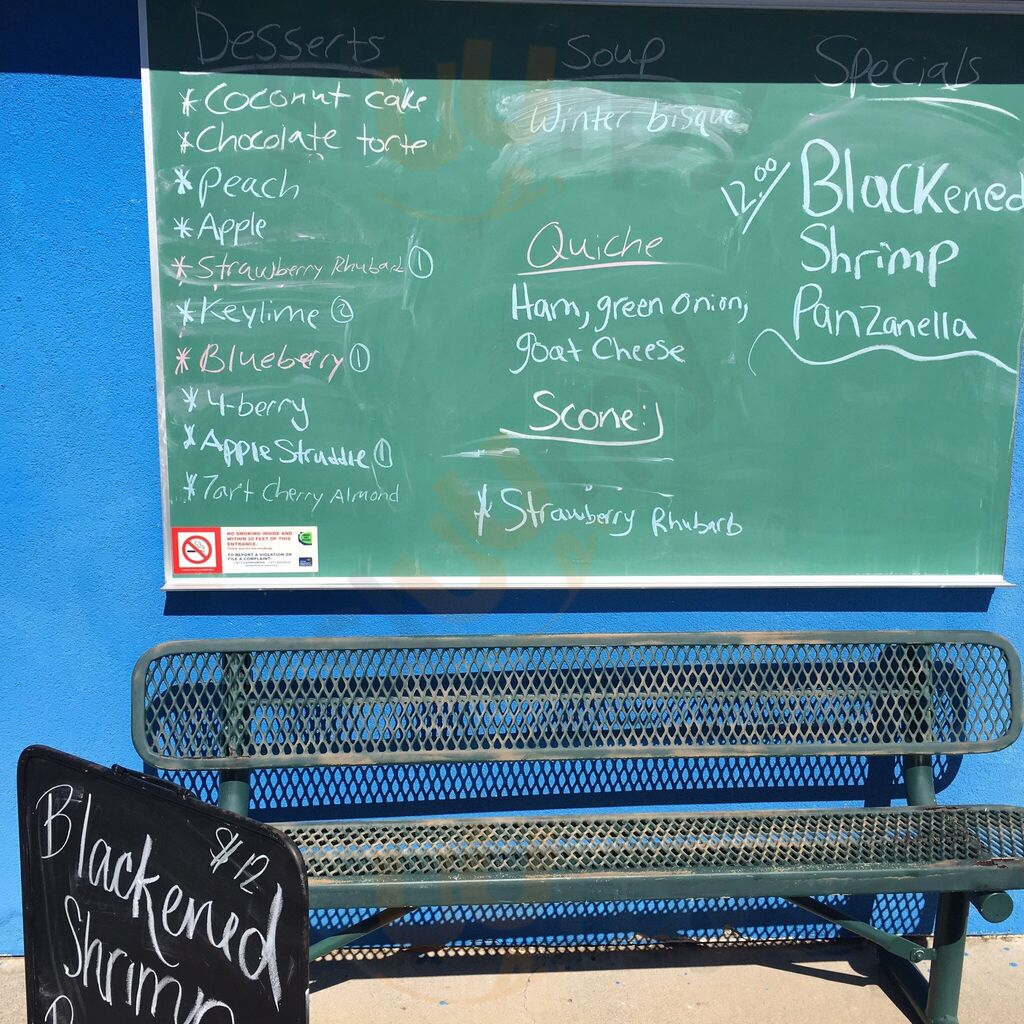 Desserts
* Coconut cake
* Chocolate torte
* Peach
* Apple
* Strawberry Rhubarb ①
* Keylime ②
* Blueberry ①
* 4-berry
* Apple Struddle ①
* Tart Cherry Almond
Soup
Winter bisque
Quiche
Ham, green onion,
goat Cheese
Scone:)
* Strawberry Rhubarb
Specials
12.00
Blackened
Shrimp
Panzanella
NO SMOKING INSIDE AND
WITHIN 20 FEET OF THIS
ENTRANCE.
TO REPORT A VIOLATION OR
FILE A COMPLAINT:
$12
Blackened
Shrimp